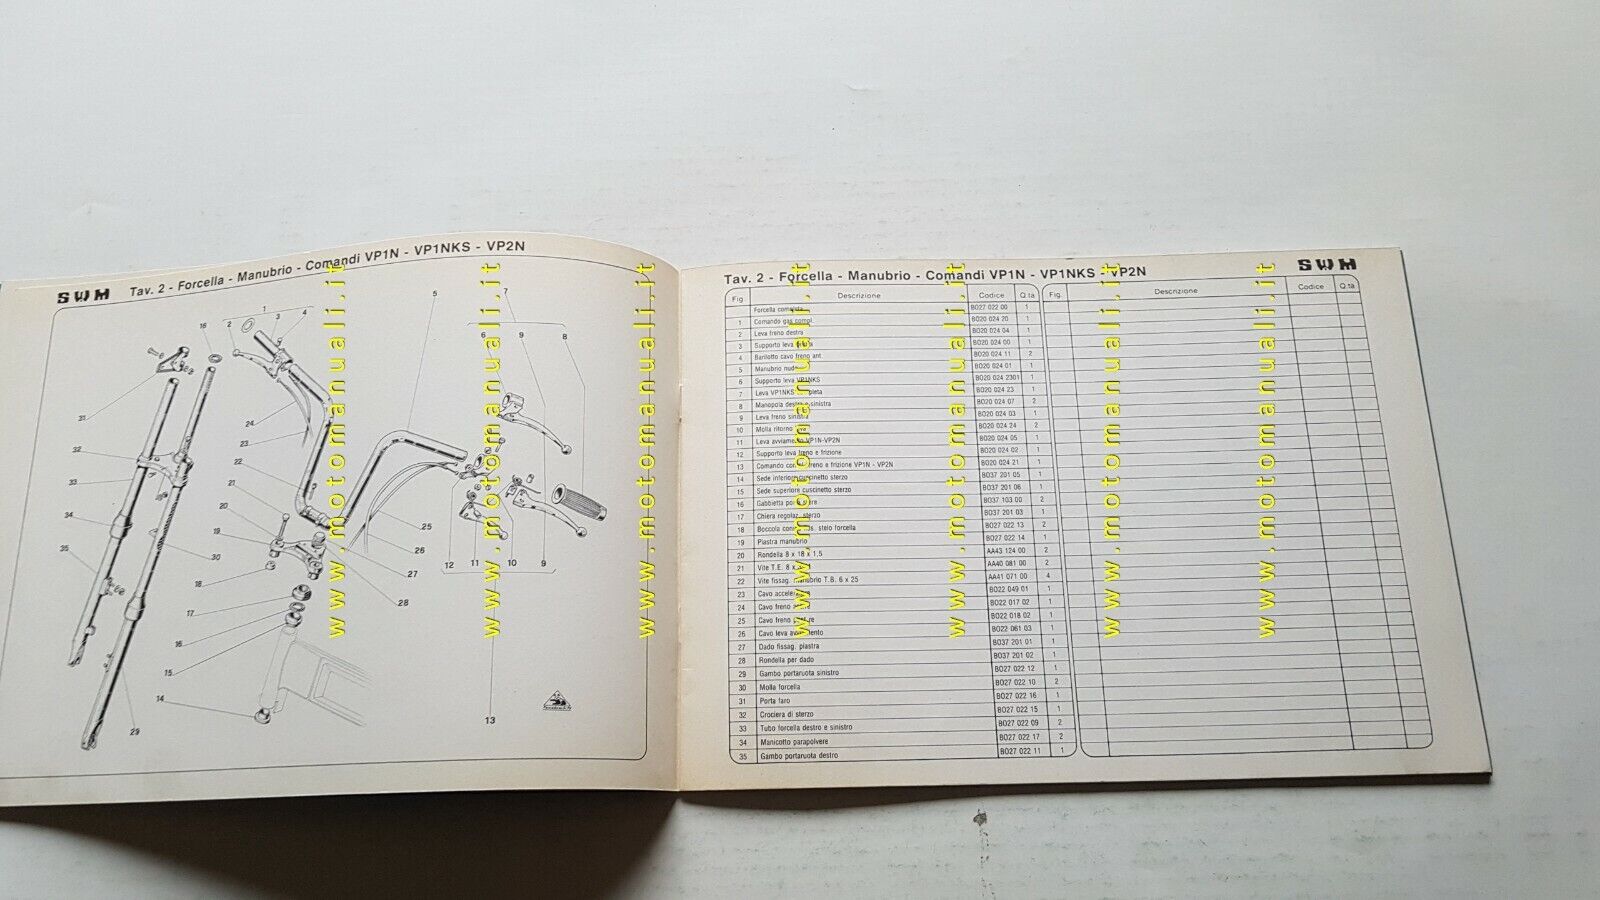 SWM Tav. 2 - Forcella - Manubrio - Comandi VP1N - VP1NKS - VP2N
Tav. 2 - Forcella - Manubrio - Comandi VP1N - VP1NKS - VP2N SWM
Fig. Descrizione Codice Q.tà Fig. Descrizione Codice Q.tà
Forcella completa B027 022 00 1
1 Comando gas compl. B020 024 20 1
2 Leva freno destra B020 024 04 1
3 Supporto leva B020 024 00 1
4 Barilotto cavo freno ant. B020 024 11 2
5 Manubrio nudo B020 024 01 1
6 Supporto leva VP1NKS B020 024 2301 1
7 Leva VP1NKS completa B020 024 23 1
8 Manopola destra e sinistra B020 024 07 2
9 Leva freno sinistra B020 024 03 1
10 Molla ritorno leva B020 024 24 2
11 Leva avviamento VP1N-VP2N B020 024 05 1
12 Supporto leva freno e frizione B020 024 02 1
13 Comando compl. freno e frizione VP1N - VP2N B020 024 21 1
14 Sede inferiore cuscinetto sterzo B037 201 05 1
15 Sede superiore cuscinetto sterzo B037 201 06 1
16 Gabbietta porta sfere B037 103 00 2
17 Chiera regolaz. sterzo B037 201 03 1
18 Boccola stelo forcella B027 022 13 2
19 Piastra manubrio B027 022 14 1
20 Rondella 8 x 18 x 1,5 AA43 124 00 2
21 Vite T.E. 8 x AA40 081 00 2
22 Vite fissag. manubrio T.B. 6 x 25 AA41 071 00 4
23 Cavo acceleratore B022 049 01 1
24 Cavo freno B022 017 02 1
25 Cavo freno B022 018 02 1
26 Cavo leva avviamento B022 061 03 1
27 Dado fissag. piastra B037 201 01 1
28 Rondella per dado B037 201 02 1
29 Gambo portaruota sinistro B027 022 12 1
30 Molla forcella B027 022 10 2
31 Porta faro B027 022 16 1
32 Crociera di sterzo B027 022 15 1
33 Tubo forcella destro e sinistro B027 022 09 2
34 Manicotto parapolvere B027 022 17 2
35 Gambo portaruota destro B027 022 11 1
www.motomanuali.it
www.motomanuali.it
www.motomanuali.it
www.motomanuali.it
www.motomanuali.it
www.motomanuali.it
www.motomanuali.it